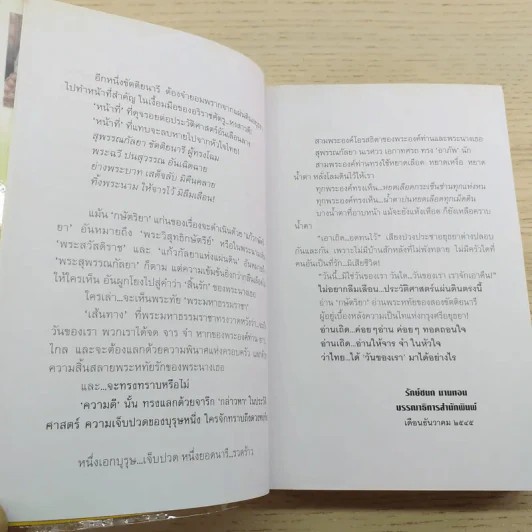 อีกหนึ่งขัตติยนารี ต้องจำยอมพรากจากแผ่นดินอยุธยา
ไปทำหน้าที่สำคัญ ในเงื้อมมือของอริราชศัตรู...หงสาวดี
'หน้าที่' ที่ดูจรอยต่อประวัติศาสตร์อันเลือนลาง
'หน้าที่' ที่แทบจะลบหายไปจากหัวใจไทย!
สุพรรณกัลยา ขัตติยนารี ผู้ทรงโฉม
พระฉวี ปนสุวรรณ อันเฉิดฉาย
ย่างพระบาท เสด็จลับ มิคืนคลาย
ทิ้งพระนาม ให้จารไว้ มิลืมเลือน!
แม้น 'กษัตริยา' แก่นของเรื่องจะดำเนินด้วย
ยา' อันหมายถึง 'พระวิสุทธิกษัตรีย์' หรือในพระนาม
'พระสวัสดิราช' และ 'แก้วกัลยาแห่งแผ่นดิน' อันหมายถึง
'พระสุพรรณกัลยา' ก็ตาม แต่ความเข้มข้นยิ่งกว่า
ให้ใครเห็น อันผูกโยงไปสู่คำว่า 'สิ้นรัก' ของพระนางเธอ
ใครเล่า...จะเห็นพระทัย 'พระมหาธรรมราชา'
'เส้นทาง' ที่พระมหาธรรมราชาทรงวาดหวังว่า
วันของเรา พวกเราได้จด จาร จำ หากของพระองค์ท่าน
ไกล และจะต้องแลกด้วยความพินาศแห่งครอบครัว
ความสิ้นสลายพระหทัยรักของพระนางเธอ
และ...จะทรงทราบหรือไม่
'ความดี' นั้น ทรงแลกด้วยจารึก 'กล่าวหา' ในประวัติ
ศาสตร์ ความเจ็บปวดของบุรุษหนึ่ง ใครจักทราบถึง
หนึ่งเอกบุรุษ...เจ็บปวด หนึ่งยอดนารี...รวดร้าว
สามพระองค์โอรสธิดาของพระองค์ท่านและพระนางเธอ
สุพรรณกัลยา นเรศวร เอกาทศรถ ทรง 'อาภัพ' นัก
สามพระองค์ท่านทรงใช้หยาดเลือด หยาดเหงื่อ หยาด
น้ำตา หลั่งโลมดินไว้ให้เรา
ทุกพระองค์ทรงเห็น...หยดเลือดกระเซ็นซ่านทุกแห่งหน
ทุกพระองค์ทรงเห็น...น้ำตาปนหยดเลือดทุกเม็ดดิน
บางน้ำตาที่อาบหน้า แม้จะยังแห้งเหือด ก็ยังเหลือคราบ
น้ำตา
"เอาเถิด...อดทนไว้" เสียงปวงประชาอยุธยาต่างปลอบ
กันและกัน เพราะไม่มีบ้านสักหลังที่ไม่พังทลาย ไม่มีครัวใดที่
คนอันเป็นที่รัก...มิเสียชีวิต!
"วันนี้...มิใช่วันของเรา วันใด...วันของเรา เราจักเอาคืน!"
ไม่อยากลืมเลือน...ประวัติศาสตร์แผ่นดินตรงนี้
อ่าน 'กษัตริยา' อ่านพระหทัยของสองขัตติยนารี
ผู้อยู่เบื้องหลังความเป็นไทแห่งกรุงศรีอยุธยา!
อ่านเถิด...ค่อยๆ อ่าน ค่อยๆ ทอดถอนใจ
อ่านเถิด...อ่านให้จาร จำ ในหัวใจ
ว่าไทย...ได้ 'วันของเรา' มาได้อย่างไร
รักษ์ชนก นามทอน
บรรณาธิการสำนักพิมพ์
เดือนธันวาคม ๒๕๔๕